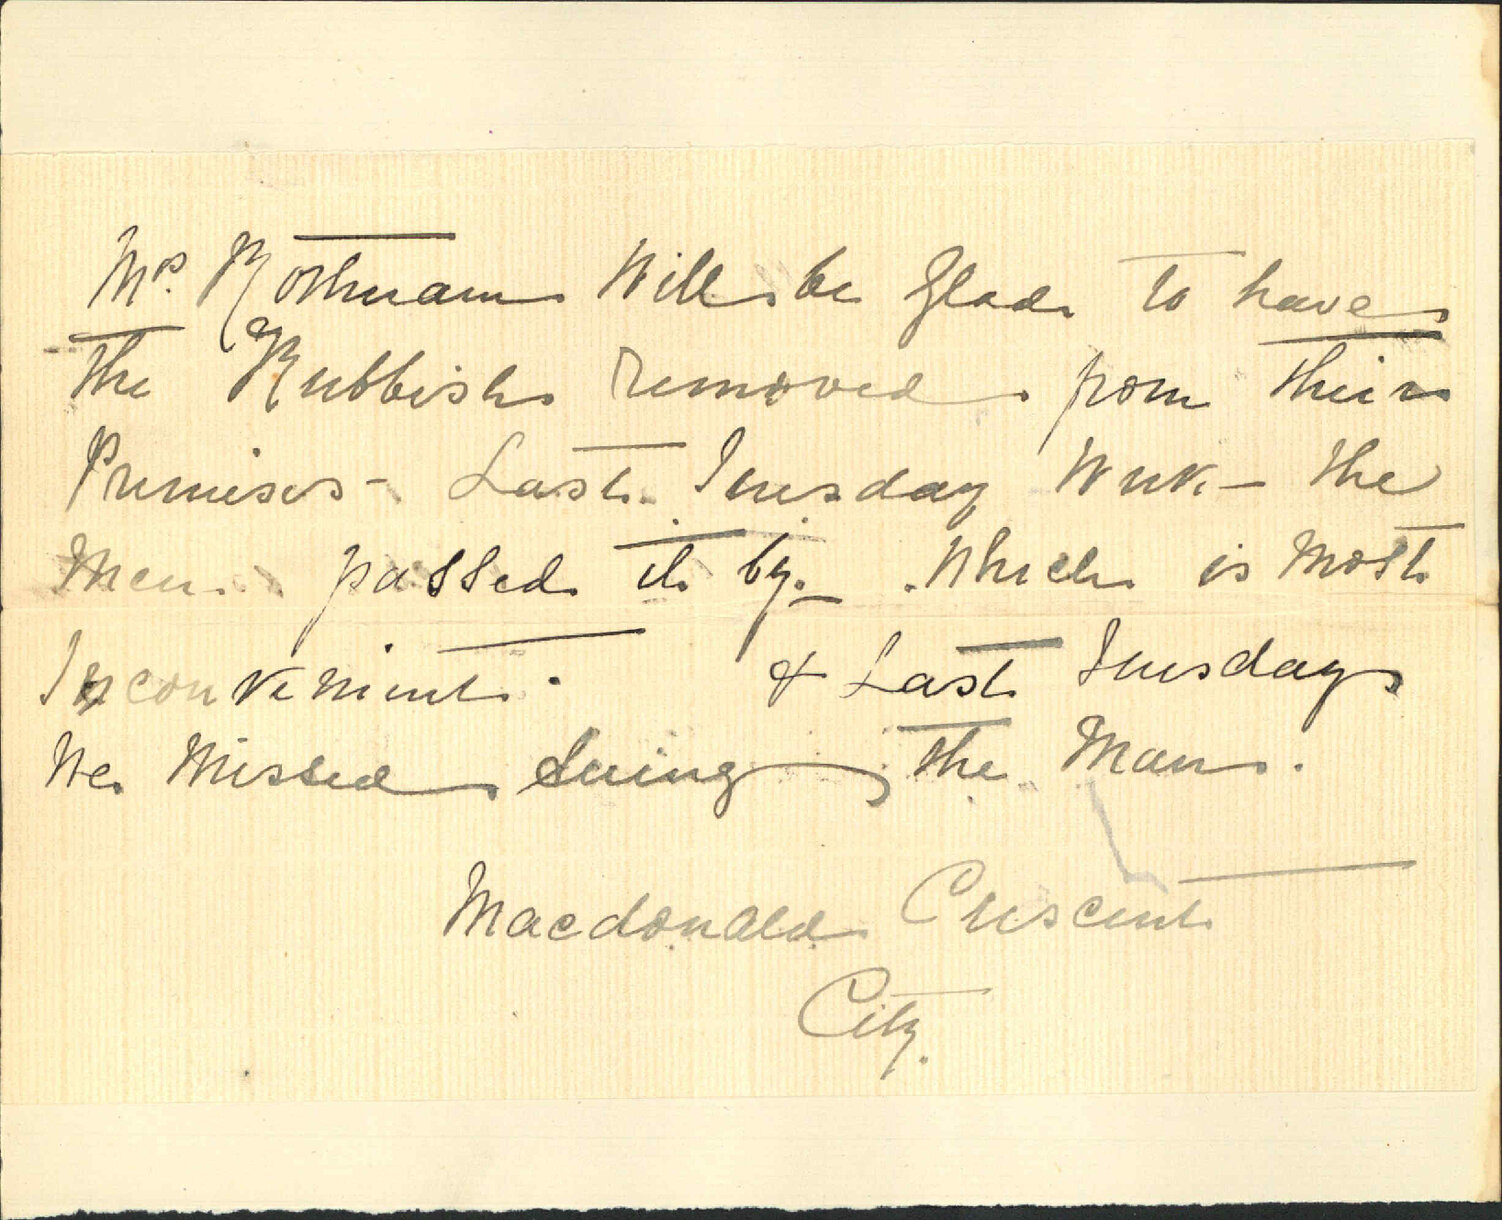 Mrs. Rothman Will be Glad to have
the Rubbish removed from their
Premises - Last Tuesday Week - the
Men passed it by. Which is Most
Inconvenient. & Last Tuesday
We Missed Seeing the Man.
Macdonald Crescent
City.